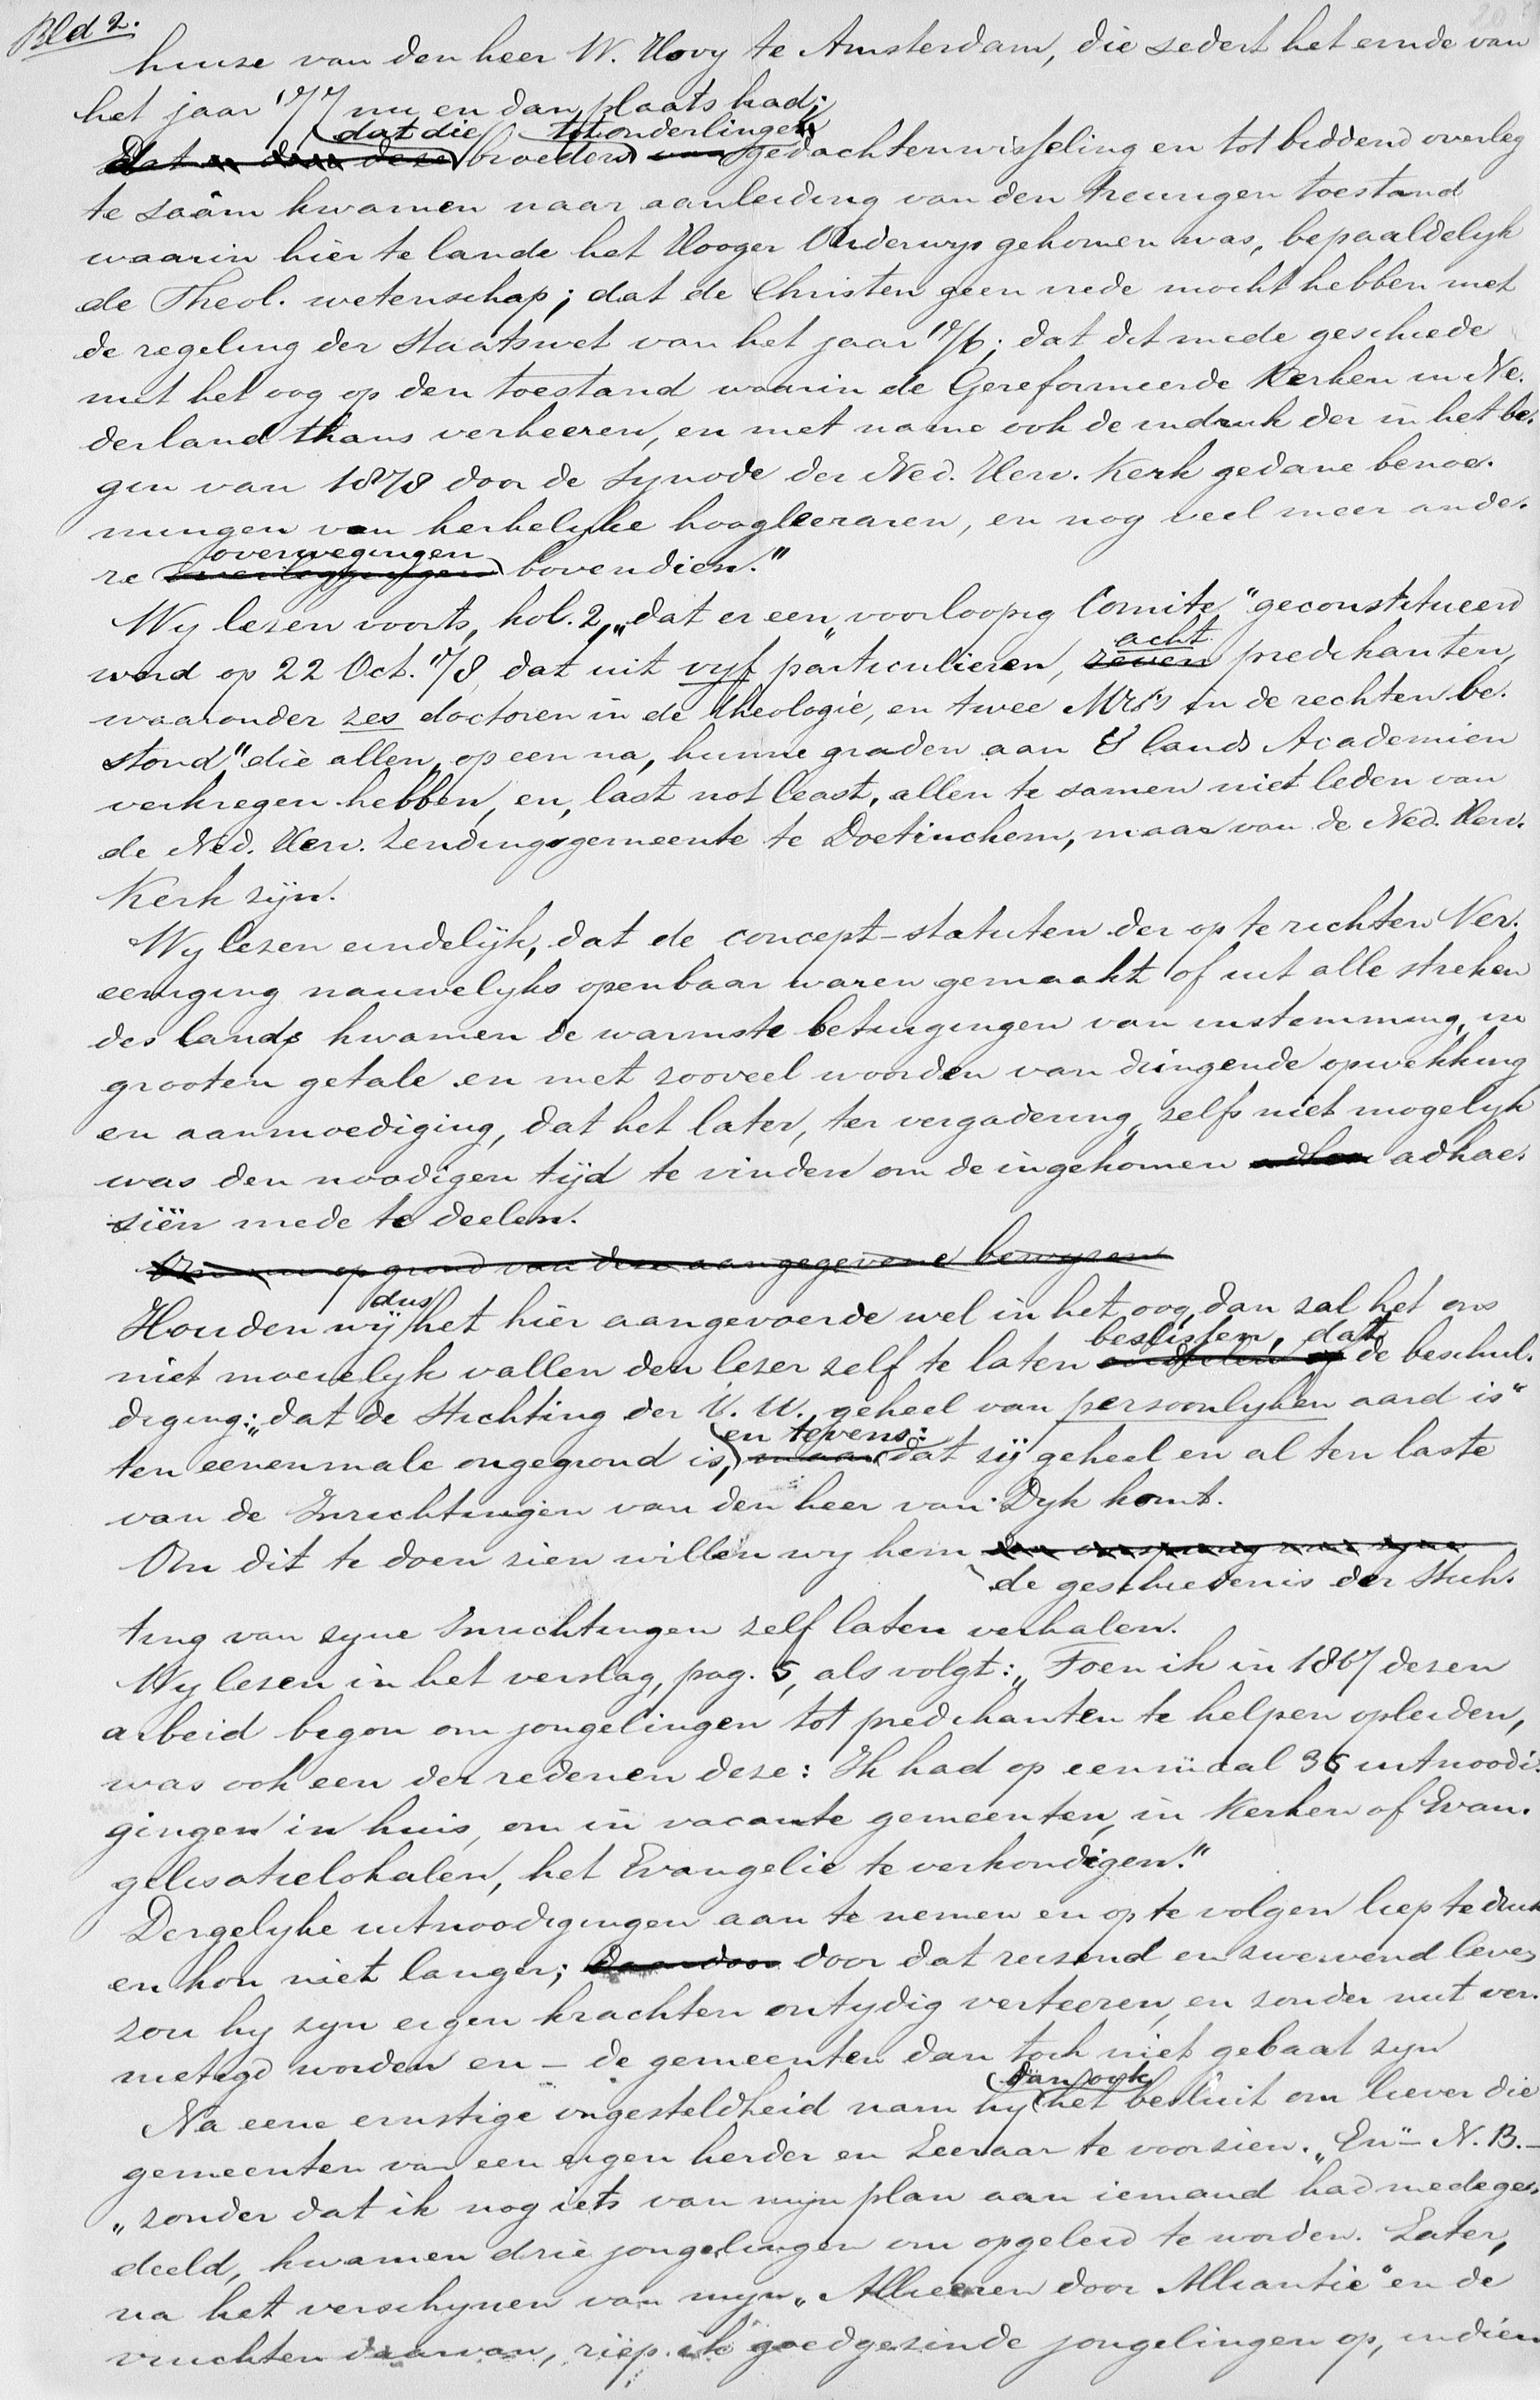 Bld 2.
huize van den heer W. Hovy te Amsterdam, die sedert het einde van
het jaar '77 nu en dan plaats had;
dat die tot onderlinge
Dat deze broeders van gedachtenwisseling en tot biddend overleg
te saâm kwamen naar aanleiding van den treurigen toestand
waarin hier te lande het Hooger Onderwys gekomen was, bepaaldelyk
de Theol. wetenschap; dat de Christen geen vrede mocht hebben met
de regeling der Staatswet van het jaar '76; dat dit mede geschiedde
met het oog op den toestand waarin de Gereformeerde Kerken in Ne-
derland thans verkeeren, en met name ook de indruk der in het be-
gin van 1878 door de Synode der Ned. Herv. Kerk gedane benoe-
mingen van kerkelyke hoogleeraren, en nog veel meer ande-
overwegingen
re bovendien."
Wy lezen voorts, kol. 2, „dat er een „voorloopig Comite" geconstitueerd
acht
werd op 22 Oct. '78, dat uit vyf particulieren, zeven predikanten,
waaronder zes doctoren in de theologie, en twee Mrs in de rechten be-
stond" die allen, op een na, hunne graden aan 's lands Academien
verkregen hebben, en, last not least, allen te samen niet leden van
de Ned. Herv. Zendingsgemeente te Doetinchem, maar van de Ned. Herv.
Kerk zijn.
Wy lezen eindelijk, dat de concept-statuten der op te richten Ver-
eeniging nauwelyks openbaar waren gemaakt of uit alle streken
des lands kwamen de warmste betuigingen van instemming, in
grooten getale en met zooveel woorden van dringende opwekking
en aanmoediging, dat het later, ter vergadering, zelfs niet mogelyk
was den noodigen tijd te vinden om de ingekomen adhae-
siën mede te deelen.
op grond van deze aangegevene bewyzen
dus
Houden wij het hier aangevoerde wel in het oog, dan zal het ons
beslissen, dat
niet moeielyk vallen den lezer zelf te laten de beschul-
diging: „dat de Stichting der V. U. geheel van persoonlyken aard is"
en tevens:
ten eenenmale ongegrond is, maar dat zij geheel en al ten laste
van de Inrichtingen van den heer van Dyk komt.
Om dit te doen zien willen wy hem
de geschiedenis der Stich-
ting van zyne Inrichtingen zelf laten verhalen.
Wy lezen in het verslag, pag. 5, als volgt: „Toen ik in 1867 dezen
arbeid begon om jongelingen tot predikanten te helpen opleiden,
was ook een der redenen deze: Ik had op eenmaal 36 uitnoodi-
gingen in huis, om in vacante gemeenten, in Kerken of Evan-
gelisatielokalen, het Evangelie te verkondigen."
Dergelyke uitnoodigingen aan te nemen en op te volgen liep te druk
en kon niet langer; daardoor door dat reizend en zwervend leven
zou hy zyn eigen krachten ontydig verteeren, en zonder nut ver-
nietigd worden en — de gemeenten dan toch niet gebaat zyn
dan ook
Na eene ernstige ongesteldheid nam hy het besluit om liever die
gemeenten van een eigen herder en Leeraar te voorzien. „En" — N.B. —
„zonder dat ik nog iets van myn plan aan iemand had medege-
deeld, kwamen drie jongelingen om opgeleid te worden. Later,
na het verschynen van myn „Allieeren door Alliantie" en de
vruchten daarvan, riep ik goedgezinde jongelingen op, indien